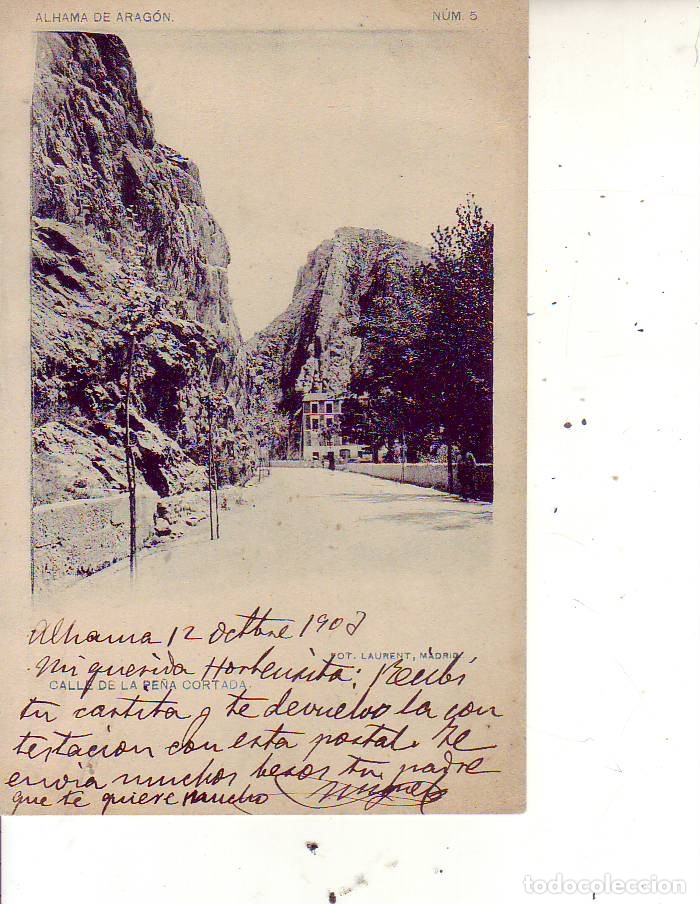 ALHAMA DE ARAGÓN. NÚM. 5
Alhama 12 octbre 190
FOT. LAURENT, MADRID
Mi querida Hortensita: Recibí
CALLE DE LA PEÑA CORTADA.
tu cartita y te devuelvo la con
testacion con esta postal. Te
envia muchos besos tu padre
que te quiere mucho Miguel
todocoleccion